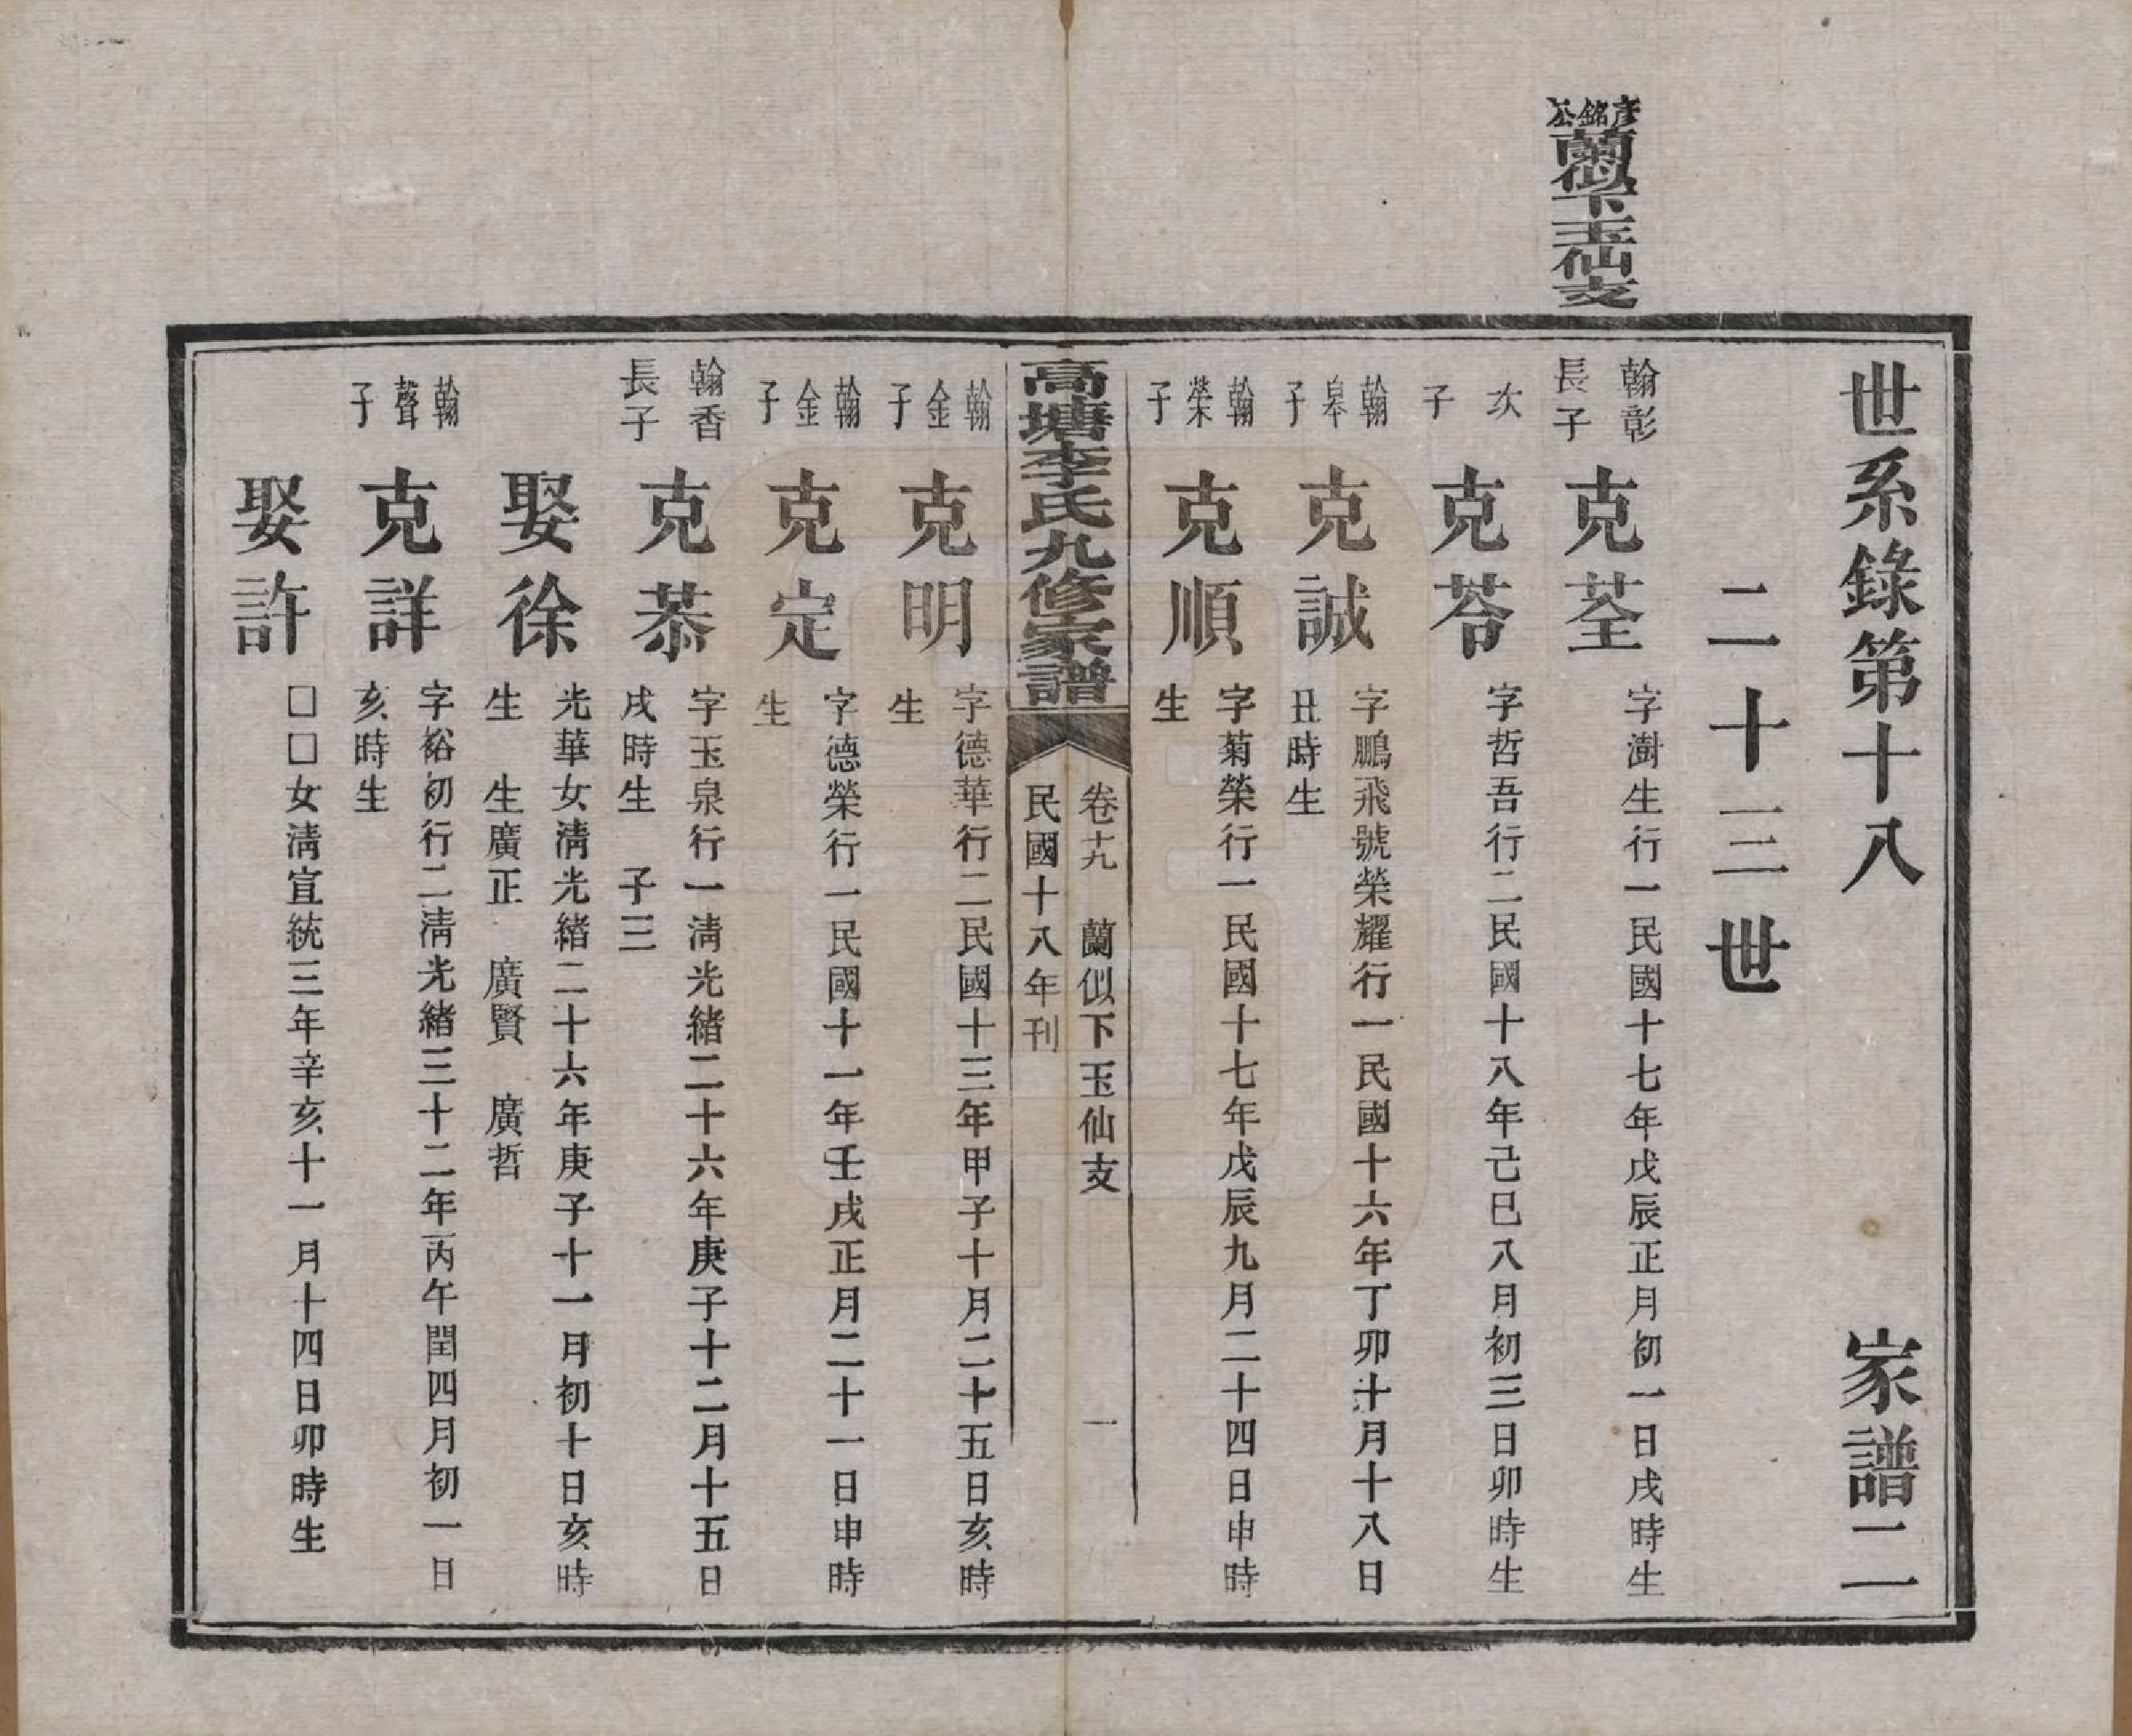 彥銘公
蘭似下玉仙支
世系錄第十八 家譜二
二十三世
翰彰長子
克荃
字澍生行一民國十七年戊辰正月初一日戌時生
次子
克苓
字哲吾行二民國十八年己巳八月初三日卯時生
翰皋子
克誠
字鵬飛號榮耀行一民國十六年丁卯十月十八日
丑時生
翰榮子
克順
字菊榮行一民國十七年戊辰九月二十四日申時
生
高塘李氏九修家譜
卷十九 蘭似下玉仙支 一
民國十八年刊
翰金子
克明
字德華行二民國十三年甲子十月二十五日亥時
生
翰金子
克定
字德榮行一民國十一年壬戌正月二十一日申時
生
翰香長子
克恭
字玉泉行一清光緒二十六年庚子十二月十五日
戌時生 子三
娶徐
光華女清光緒二十六年庚子十一月初十日亥時
生 生廣正 廣賢 廣哲
翰聲子
克詳
字裕初行二清光緒三十二年丙午閏四月初一日
亥時生
娶許
□□女清宣統三年辛亥十一月十四日卯時生